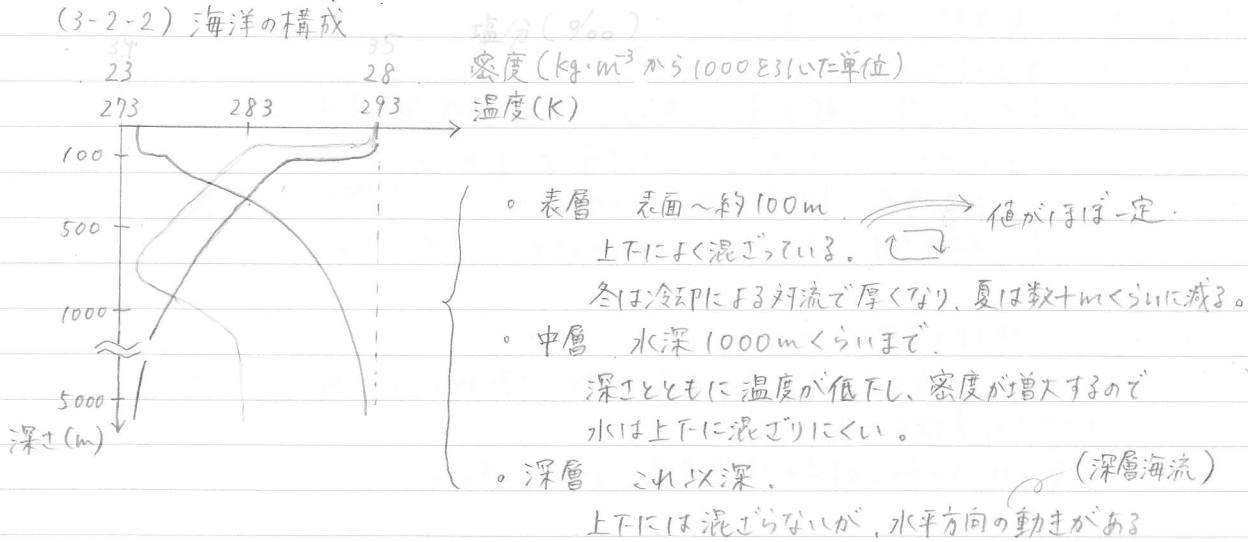 (3-2-2) 海洋の構成
塩分(‰)
34 35
密度(kg·m⁻³から1000を引いた単位)
23 28
温度(K)
273 283 293
100
500
1000
5000
深さ(m)
。表層 表面~約100m. 値がほぼ一定.
上下によく混ざっている。
冬は冷却による対流で厚くなり、夏は数十mくらいに減る。
。中層 水深1000mくらいまで.
深さとともに温度が低下し、密度が増大するので
水は上下に混ざりにくい。
。深層 これ以深.
(深層海流)
上下には混ざらないが、水平方向の動きがある